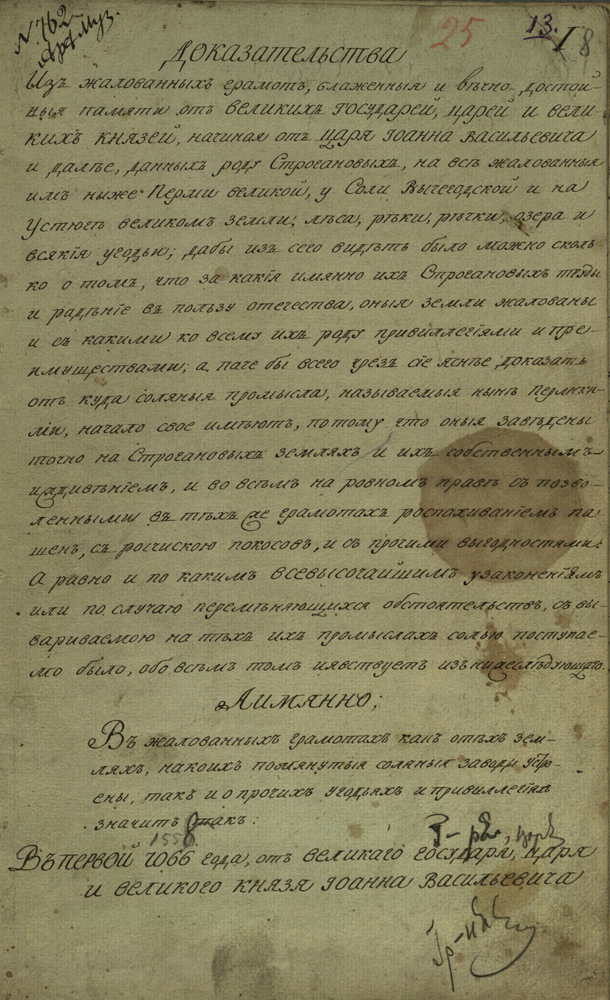 N 762
25
13. I 8
Доказательства
Изъ жалованныхъ грамотъ, блаженныя и вѣчно достой-
ныя памяти отъ великихъ государей, царей и вели-
кихъ князей, начиная отъ царя Iоанна Васильевича
и далѣе, данныхъ роду Строгановыхъ, на всѣ жалованныя
имъ ниже Перми великой, у Соли Вычегодской и на
Устюгѣ великомъ земли, лѣса, рѣки, рѣчки, озера и
всякiя угодья; дабы изъ сего видѣть было можно сколь-
ко о томъ, что за какiя имянно ихъ Строгановыхъ труды
и радѣнiе въ пользу отечества, оныя земли жалованы
и съ какими ко всему ихъ роду привиллегiями и пре-
имуществами; а паче бы всего чрезъ сiе яснѣе доказать
отъ куда соляныя промысла, называемыя нынѣ Пермски-
ми, начало свое имѣютъ, потому что оныя заведены
точно на Строгановыхъ земляхъ и ихъ собственнымъ
иждивѣнiемъ, и во всемъ на ровномъ правѣ съ позво-
ленными въ тѣхъ же грамотахъ роспахиванiемъ па-
шенъ, съ росчискою покосовъ, и съ прочими выгодностями.
А равно и по какимъ всевысочайшимъ узаконенiямъ
или по случаю перемѣняющихся обстоятельствъ, съ вы-
вариваемою на тѣхъ ихъ промыслахъ солью поступае-
мо было, обо всѣмъ томъ явствуетъ изъ нижеслѣдующаго.
Аимянно;
Въ жалованныхъ грамотахъ какъ о тѣхъ зем-
ляхъ, на коихъ помянутыя соляныя заводы устро-
ены, такъ и о прочихъ угодьяхъ и привиллегiяхъ
значитъ такъ:
1558
Въ первой 7066 года, отъ великаго государя, царя
и великого князя Iоанна Васильевича